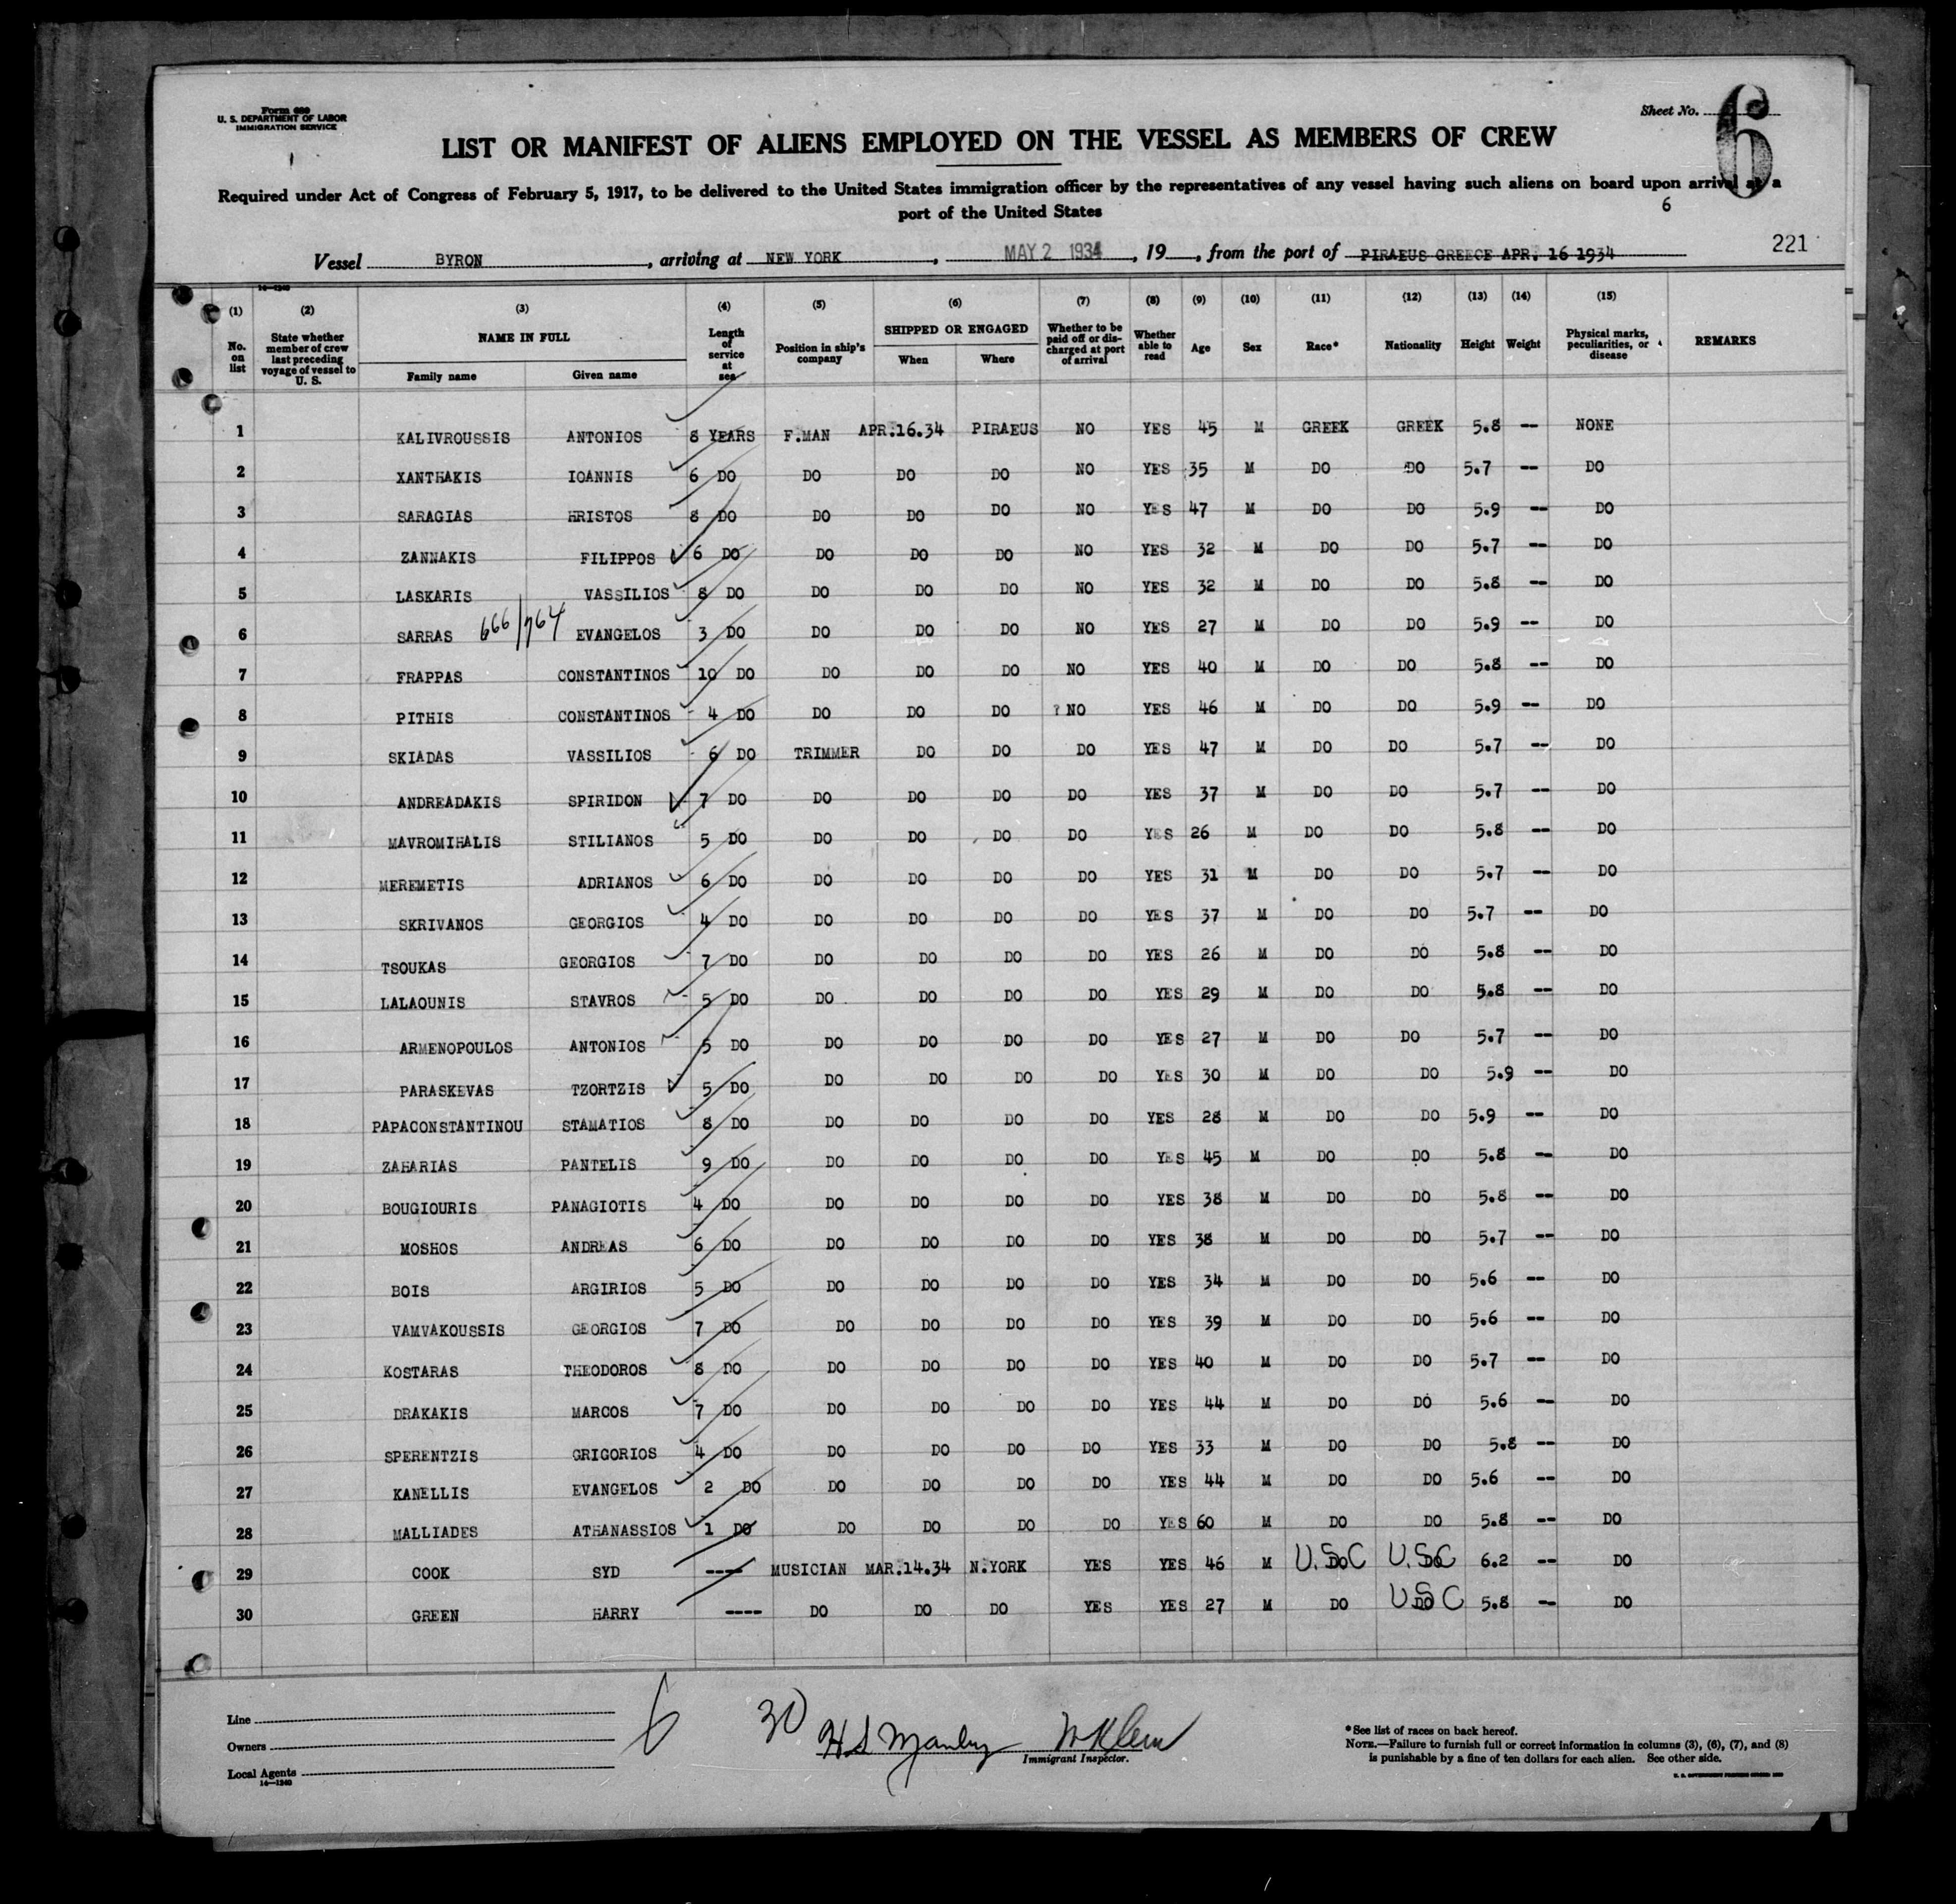 Form 689
U. S. DEPARTMENT OF LABOR
IMMIGRATION SERVICE
Sheet No. 6
LIST OR MANIFEST OF ALIENS EMPLOYED ON THE VESSEL AS MEMBERS OF CREW
Required under Act of Congress of February 5, 1917, to be delivered to the United States immigration officer by the representatives of any vessel having such aliens on board upon arrival at a
port of the United States
6
221
Vessel BYRON, arriving at NEW YORK, MAY 2 1934, 19, from the port of PIRAEUS GREECE APR. 16 1934
14—1240
(1) No. on list (2) State whether member of crew last preceding voyage of vessel to U. S. (3) NAME IN FULL Family name Given name (4) Length of service at sea (5) Position in ship's company (6) SHIPPED OR ENGAGED When Where (7) Whether to be paid off or discharged at port of arrival (8) Whether able to read (9) Age (10) Sex (11) Race* (12) Nationality (13) Height (14) Weight (15) Physical marks, peculiarities, or disease REMARKS
1 KALIVROUSSIS ANTONIOS 8 YEARS F.MAN APR.16.34 PIRAEUS NO YES 45 M GREEK GREEK 5.8 -- NONE
2 XANTHAKIS IOANNIS 6 DO DO DO DO NO YES 35 M DO DO 5.7 -- DO
3 SARAGIAS HRISTOS 8 DO DO DO DO NO YES 47 M DO DO 5.9 -- DO
4 ZANNAKIS FILIPPOS 6 DO DO DO DO NO YES 32 M DO DO 5.7 -- DO
5 LASKARIS VASSILIOS 8 DO DO DO DO NO YES 32 M DO DO 5.8 -- DO
6 SARRAS 666/764 EVANGELOS 3 DO DO DO DO NO YES 27 M DO DO 5.9 -- DO
7 FRAPPAS CONSTANTINOS 10 DO DO DO DO NO YES 40 M DO DO 5.8 -- DO
8 PITHIS CONSTANTINOS 4 DO DO DO DO ? NO YES 46 M DO DO 5.9 -- DO
9 SKIADAS VASSILIOS 6 DO TRIMMER DO DO DO YES 47 M DO DO 5.7 -- DO
10 ANDREADAKIS SPIRIDON 7 DO DO DO DO DO YES 37 M DO DO 5.7 -- DO
11 MAVROMIHALIS STILIANOS 5 DO DO DO DO DO YES 26 M DO DO 5.8 -- DO
12 MEREMETIS ADRIANOS 6 DO DO DO DO DO YES 31 M DO DO 5.7 -- DO
13 SKRIVANOS GEORGIOS 4 DO DO DO DO DO YES 37 M DO DO 5.7 -- DO
14 TSOUKAS GEORGIOS 7 DO DO DO DO DO YES 26 M DO DO 5.8 -- DO
15 LALAOUNIS STAVROS 5 DO DO DO DO DO YES 29 M DO DO 5.8 -- DO
16 ARMENOPOULOS ANTONIOS 5 DO DO DO DO DO YES 27 M DO DO 5.7 -- DO
17 PARASKEVAS TZORTZIS 5 DO DO DO DO DO YES 30 M DO DO 5.9 -- DO
18 PAPACONSTANTINOU STAMATIOS 8 DO DO DO DO DO YES 28 M DO DO 5.9 -- DO
19 ZAHARIAS PANTELIS 9 DO DO DO DO DO YES 45 M DO DO 5.8 -- DO
20 BOUGIOURIS PANAGIOTIS 4 DO DO DO DO DO YES 38 M DO DO 5.8 -- DO
21 MOSHOS ANDREAS 6 DO DO DO DO DO YES 38 M DO DO 5.7 -- DO
22 BOIS ARGIRIOS 5 DO DO DO DO DO YES 34 M DO DO 5.6 -- DO
23 VAMVAKOUSSIS GEORGIOS 7 DO DO DO DO DO YES 39 M DO DO 5.6 -- DO
24 KOSTARAS THEODOROS 8 DO DO DO DO DO YES 40 M DO DO 5.7 -- DO
25 DRAKAKIS MARCOS 7 DO DO DO DO DO YES 44 M DO DO 5.6 -- DO
26 SPERENTZIS GRIGORIOS 4 DO DO DO DO DO YES 33 M DO DO 5.8 -- DO
27 KANELLIS EVANGELOS 2 DO DO DO DO DO YES 44 M DO DO 5.6 -- DO
28 MALLIADES ATHANASSIOS 1 DO DO DO DO DO YES 60 M DO DO 5.8 -- DO
29 COOK SYD ---- MUSICIAN MAR.14.34 N.YORK YES YES 46 M DO U.S.C DO U.S.C 6.2 -- DO
30 GREEN HARRY ---- DO DO DO YES YES 27 M DO DO USC 5.8 -- DO
6 30 H S Manley W Klein
Immigrant Inspector.
Line
Owners
Local Agents
14—1240
*See list of races on back hereof.
NOTE.—Failure to furnish full or correct information in columns (3), (6), (7), and (8)
is punishable by a fine of ten dollars for each alien. See other side.